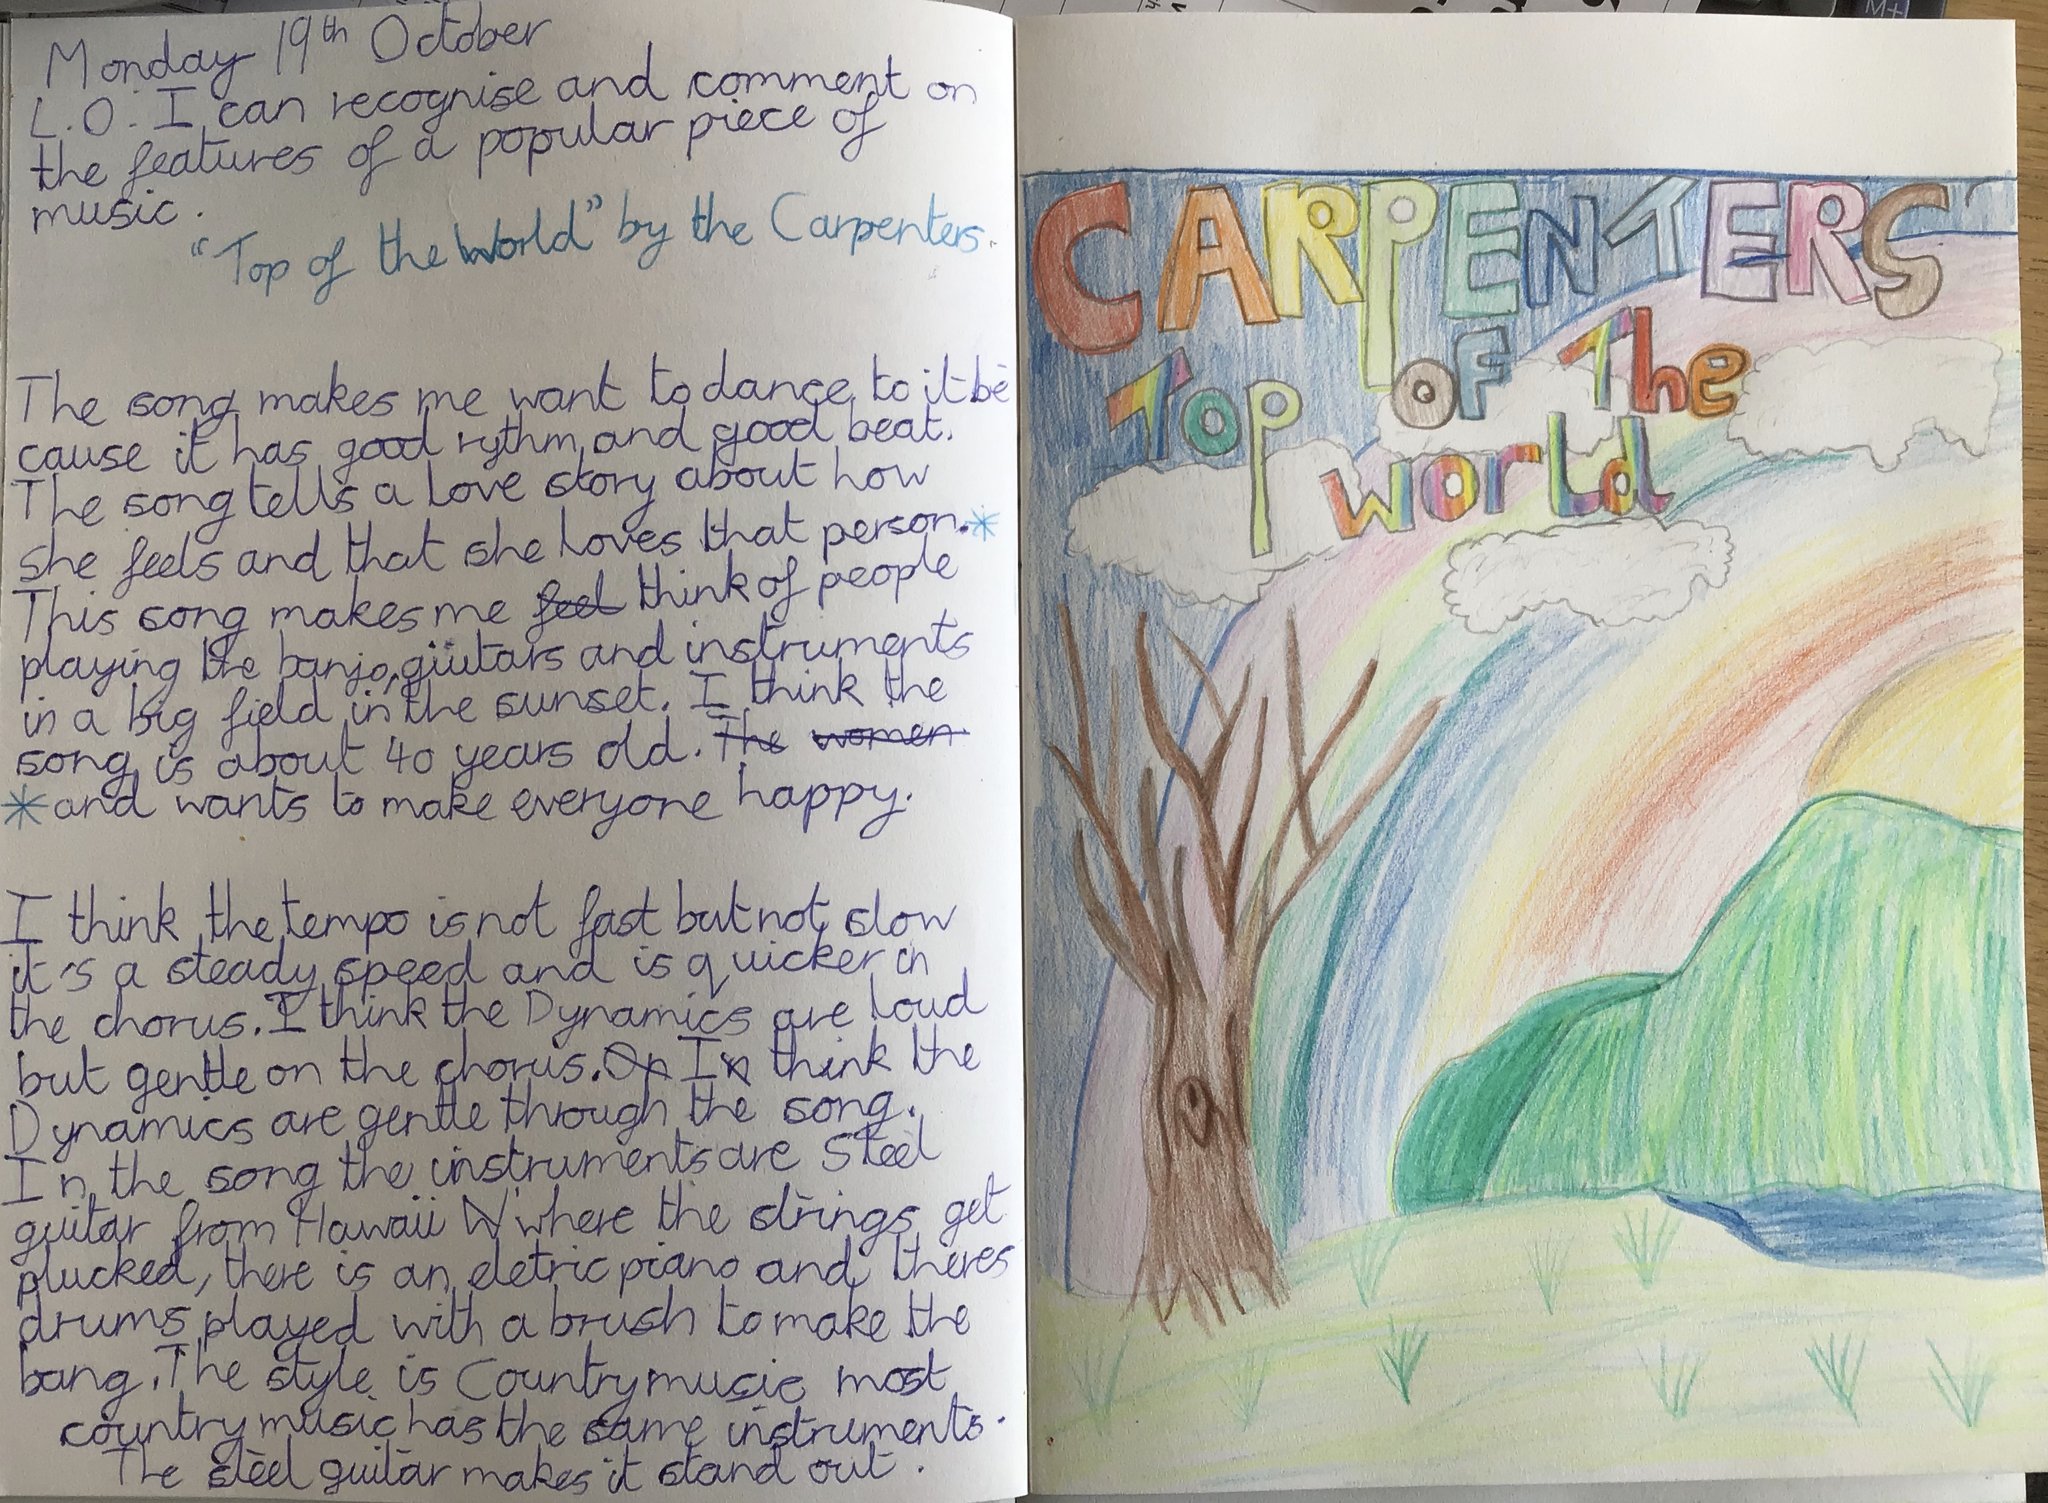 Monday 19th October
L.O: I can recognise and comment on
the features of a popular piece of
music.
"Top of the World" by the Carpenters.
The song makes me want to dance to it be
cause it has good rythm and good beat.
The song tells a love story about how
she feels and that she loves that person.*
This song makes me feel think of people
playing the banjo, giutars and instruments
in a big field in the sunset. I think the
song is about 40 years old. The women
*and wants to make everyone happy.
I think the tempo is not fast but not slow
it's a steady speed and is quicker in
the chorus. I think the Dynamics are loud
but gentle on the chorus. On In think the
Dynamics are gentle through the song.
In the song the instruments are Steel
guitar from Hawaii W where the strings get
plucked, there is an eletric piano and theres
drums played with a brush to make the
bang. The style is Country music most
country music has the same instruments.
The steel guitar makes it stand out.
CARPENTERS
Top of The
World
M+